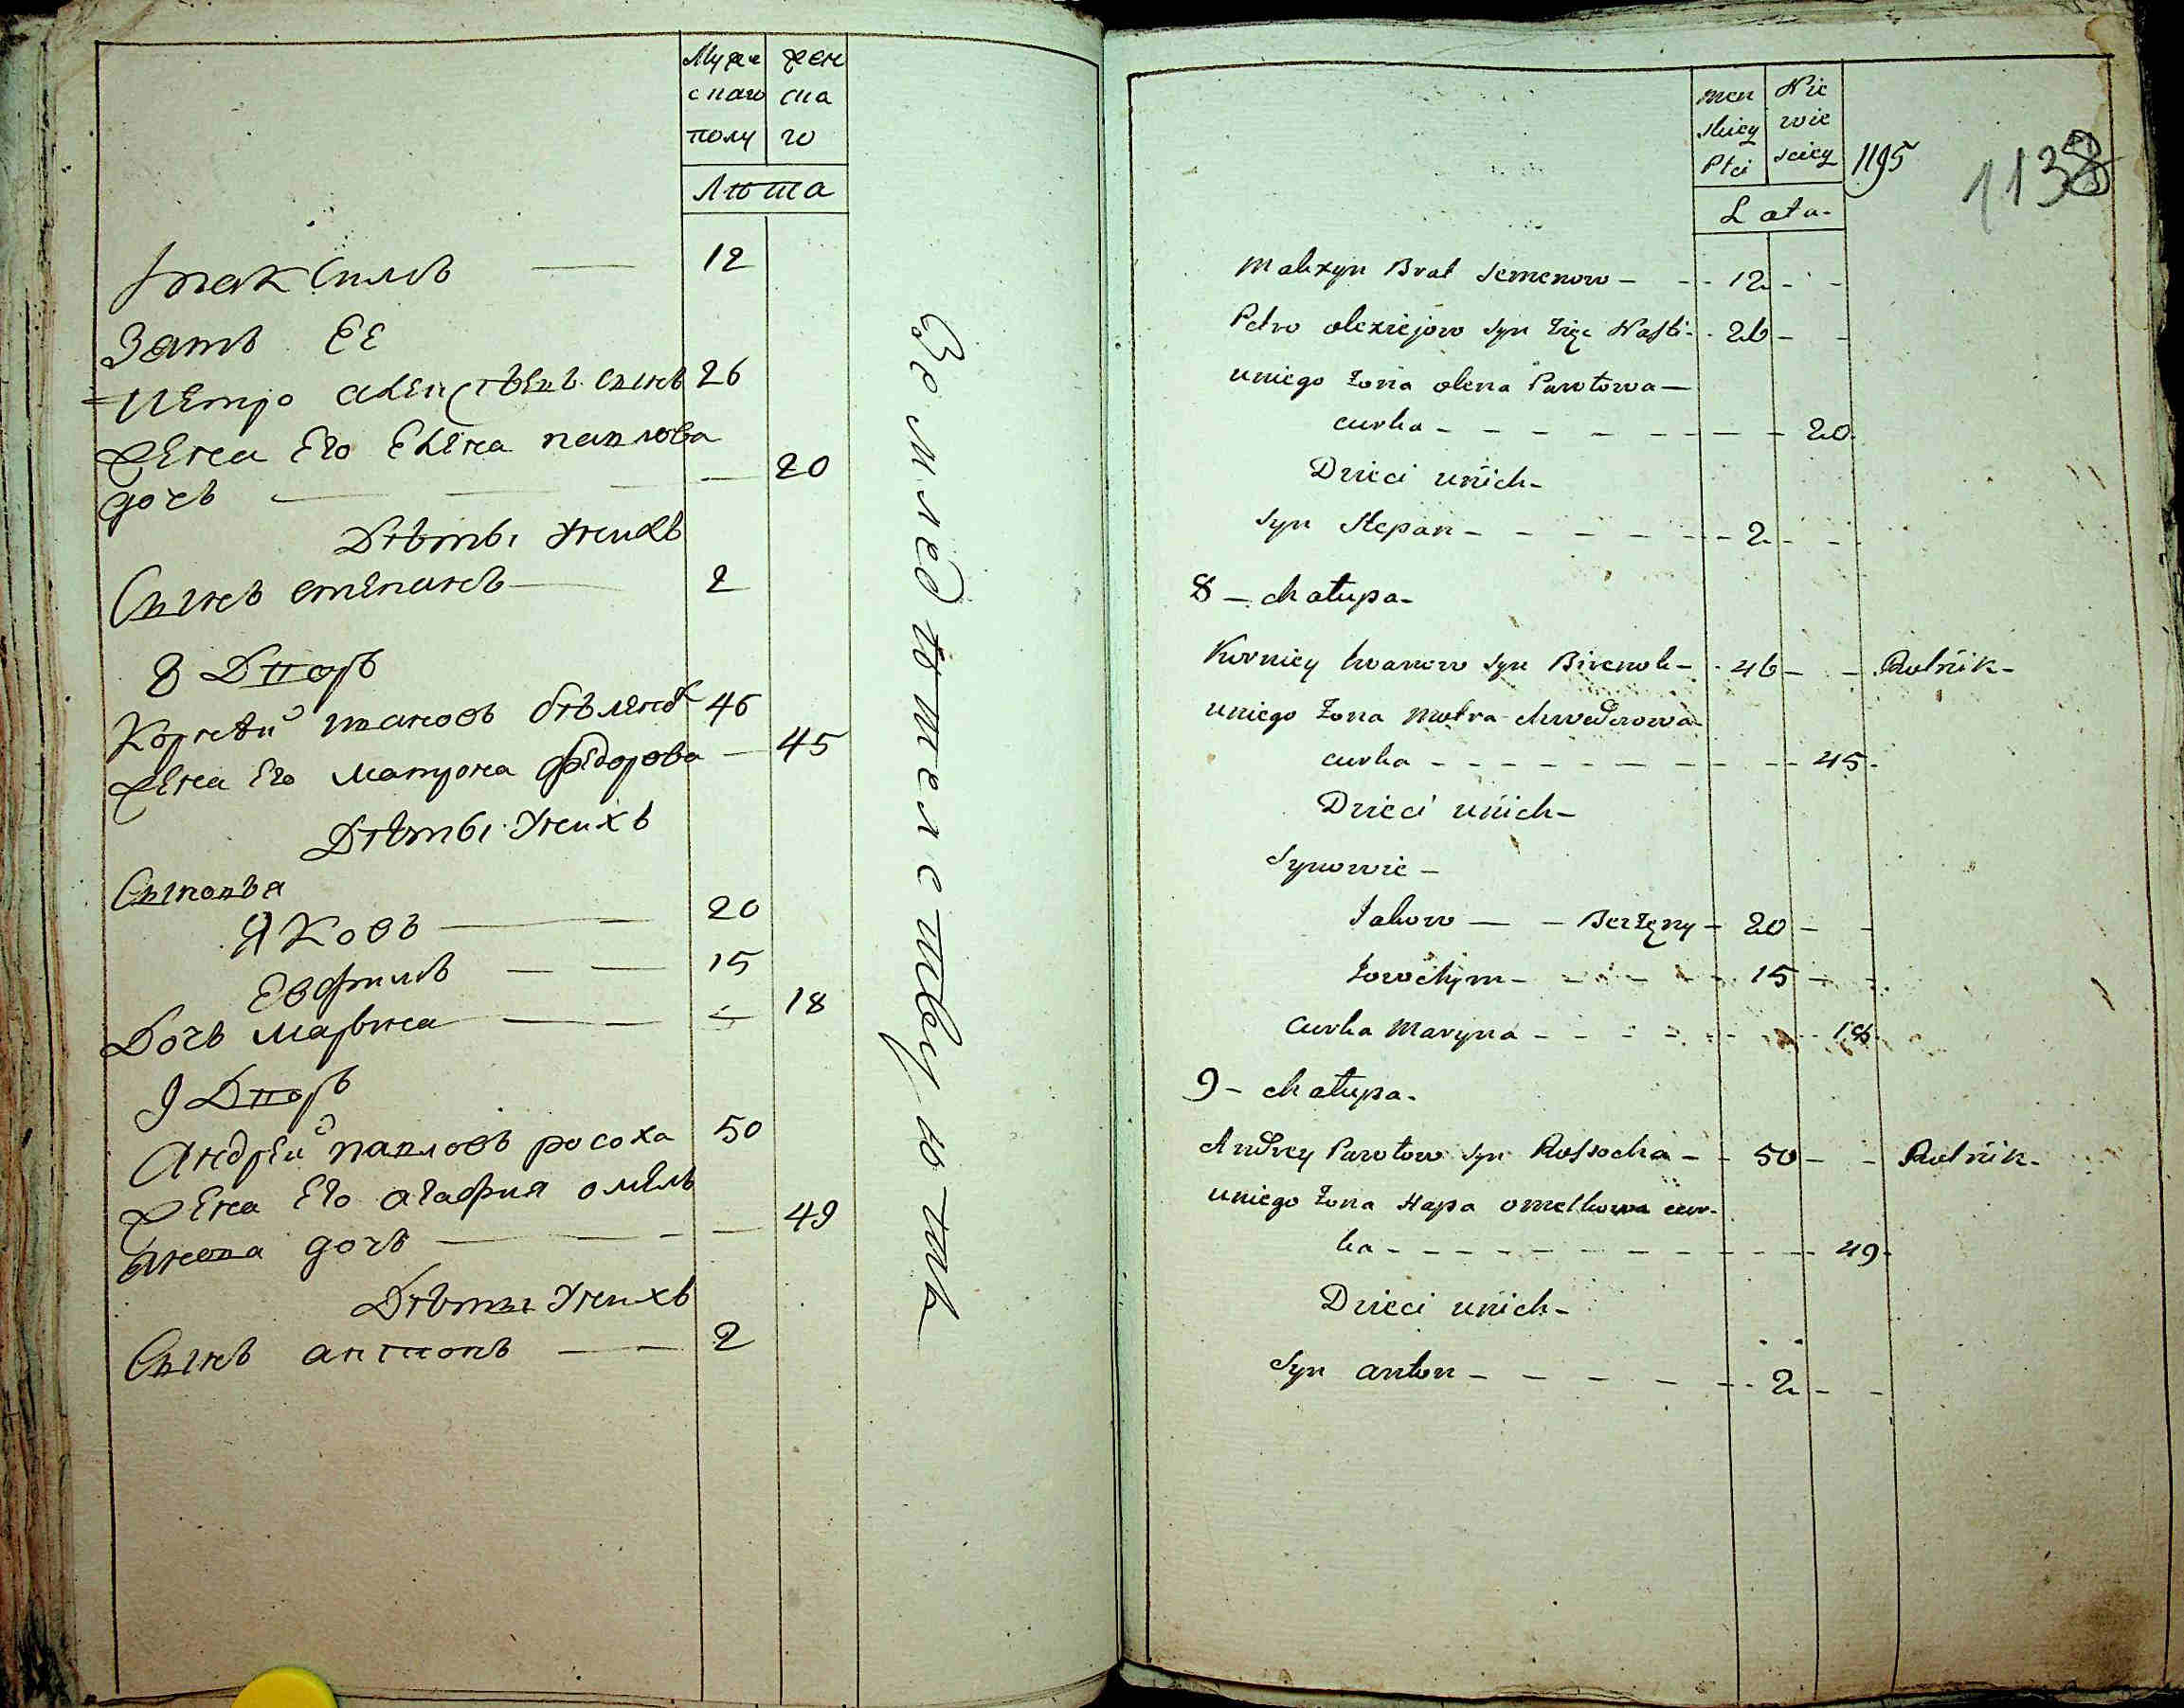 Мужескаго полу
женскаго
Лѣта
Максимъ — 12
Зять ее
Петро алексѣевъ сынъ 26
Жена его Елена павлова
дочь — — — 20
Дѣти у нихъ
Сынъ степанъ — 2
8 Дворъ
Корнѣй ивановъ бѣленокъ 46
Жена его матрона федорова — 45
Дѣти у нихъ
Сыновья
Яковъ — — 20
Евфимъ — — 15
Дочь марьяна — — — 18
9 Дворъ
Андрей павловъ росоха 50
Жена его агафия омель
янова дочь — — — 49
Дѣти у нихъ
Сынъ антонъ — — 2
Земледѣтелствуютъ
Men
skiey
Płci
Nie
wie
sciey
1195
1138
Lata
Maxzym Brat Semenow — 12
Petro olexiejow syn Zięc Nasti 26
uniego żona olena Pawłowa
curka — 20
Dzieci unich
syn Stepan — 2
8 — chałupa
Korniey Iwanow syn Bilenok — 46 — Rolnik
uniego żona Motra chwedorowa
curka — 45
Dzieci unich
Synowie
Jakow — Berżęny — 20
Jowchym — 15
Curka Maryna — 18
9 — chałupa
Andrey Pawłow syn Rossocha — 50 — Rolnik
uniego żona Hapa omelkowa cur-
ka — 49
Dzieci unich
syn anton — 2